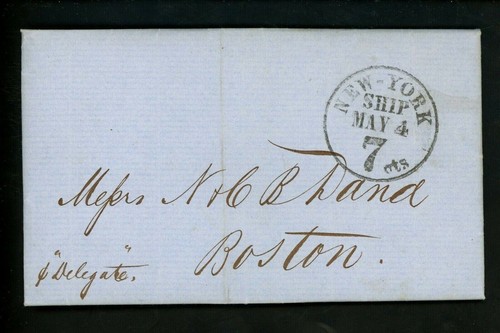 NEW-YORK
SHIP
MAY 4
7 cts
Messrs N & C B Dana
Boston.
p "Delegate",